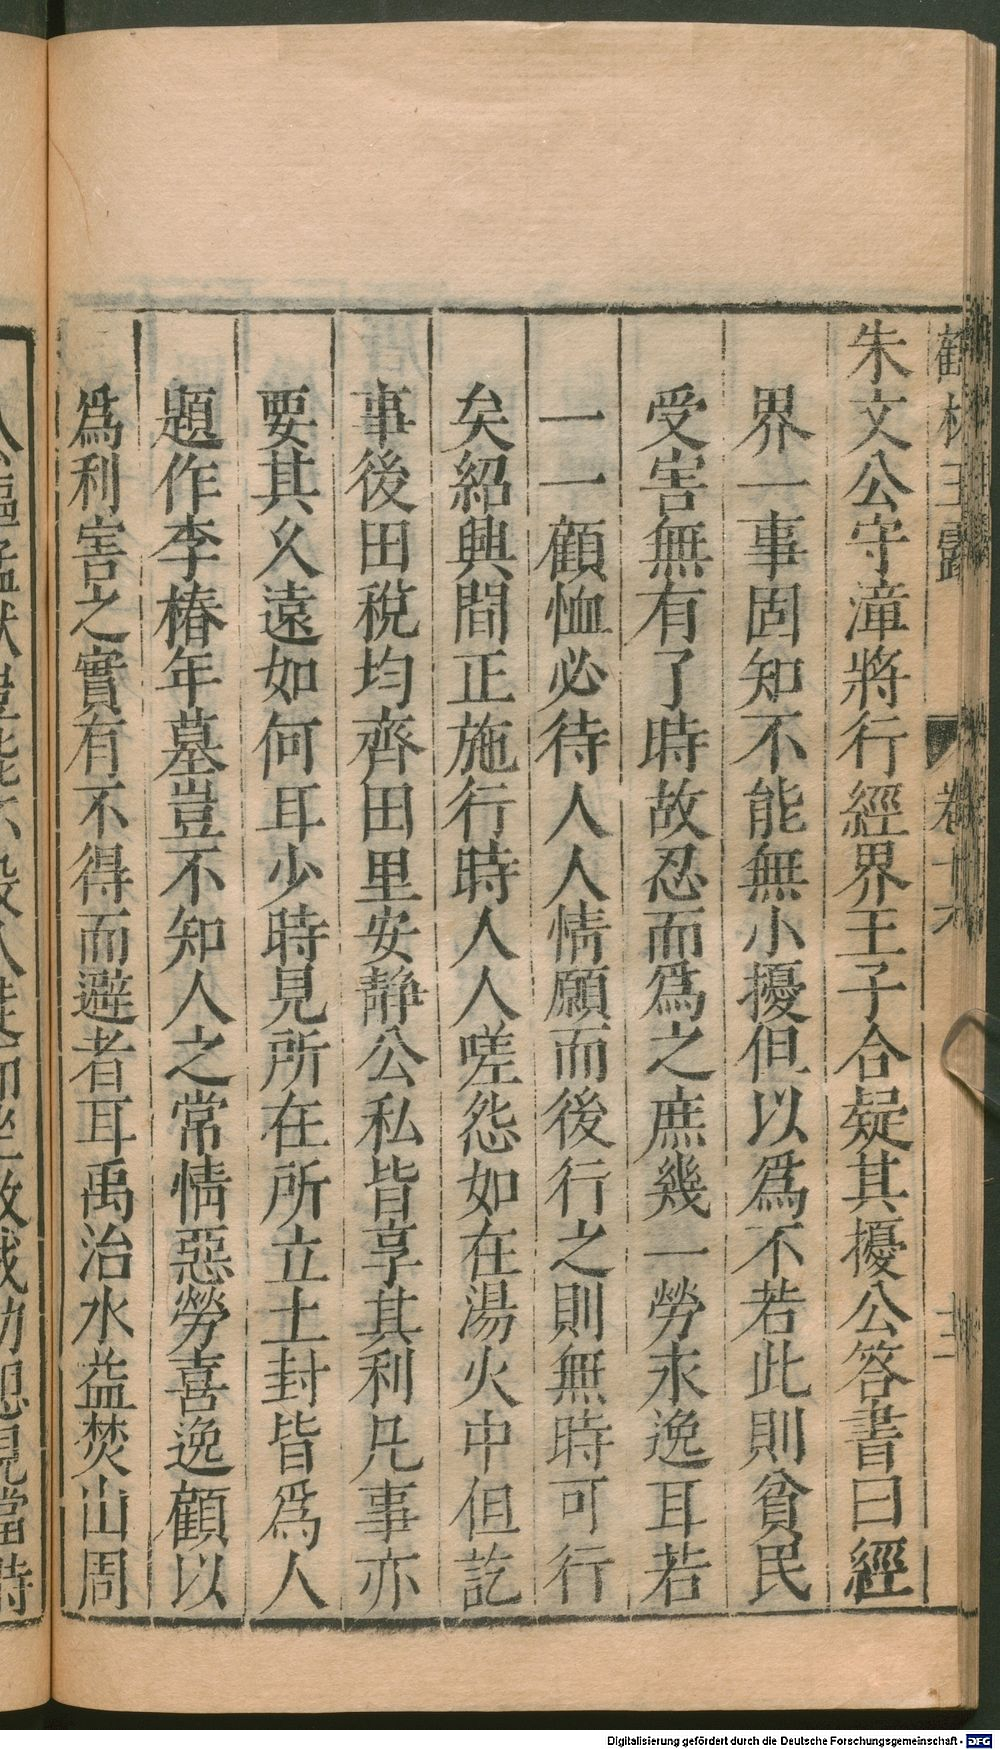 鶴林玉露 卷十六 十二
朱文公守漳將行經界王子合疑其擾公答書曰經
界一事固知不能無小擾但以爲不若此則貧民
受害無有了時故忍而爲之庶幾一勞永逸耳若
一一顧恤必待人人情願而後行之則無時可行
矣紹興間正施行時人人嗟怨如在湯火中但訖
事後田稅均齊田里安静公私皆享其利凡事亦
要其久遠如何耳少時見所在所立土封皆爲人
題作李椿年墓豈不知人之常情惡勞喜逸顧以
爲利害之實有不得而避者耳禹治水益焚山周
Digitalisierung gefördert durch die Deutsche Forschungsgemeinschaft - DFG